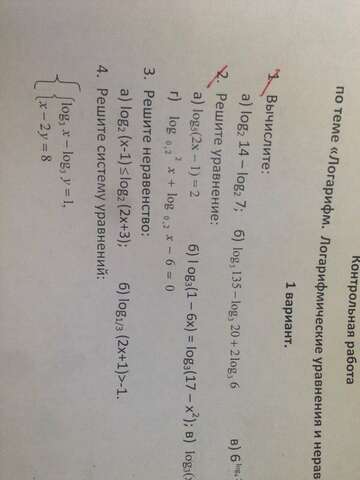 Контрольная работа
по теме «Логарифм. Логарифмические уравнения и нерав
1 вариант.
1. Вычислите:
а) log₂ 14 – log₂ 7; б) log₃ 135 – log₃ 20 + 2 log₃ 6 в) 6
2. Решите уравнение:
а) log₅(2x – 1) = 2 б) log₃(1 – 6x) = log₃(17 – x²); в) log₃(
г) log ₀,₂² x + log ₀,₂ x – 6 = 0
3. Решите неравенство:
а) log₂ (x-1) ≤ log₂ (2x+3); б) log₁/₃ (2x+1)>-1.
4. Решите систему уравнений:
{ log₃ x – log₃ y = 1,
x – 2y = 8